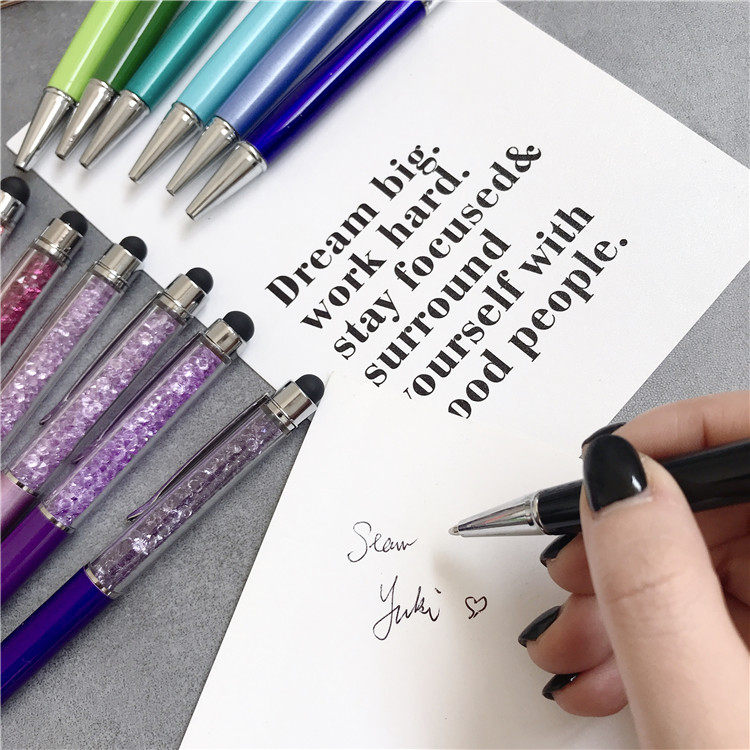 Dream big.
work hard.
stay focused&
surround
yourself with
ood people.
Sean
Yuki